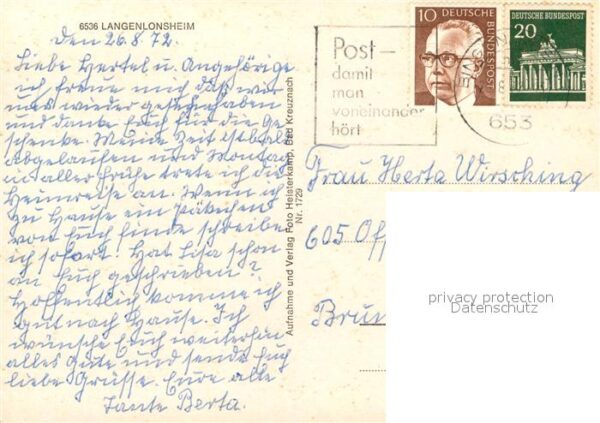 6536 LANGENLONSHEIM
den 26.8.72.
Liebe Hertel u. Angehörige
ich freue mich daß wir
uns wieder gesehen haben
und danke Euch für die Ge-
schenke. Meine Zeit ist bald
abgelaufen und Montag
in aller Frühe trete ich die
Heimreise an. Wenn ich
zu Hause ein Päckchen
von Euch finde schreibe
ich sofort. Hat Lisa schon
an Euch geschrieben?
Hoffentlich komme ich
gut nach Hause. Ich
wünsche Euch weiterhin
alles Gute und sende Euch
liebe Grüsse. Eure alle
Tante Berta.
Aufnahme und Verlag Foto Heisterkamp, Bad Kreuznach
Nr. 1729
Post-
damit
man
voneinander
hört
10 DEUTSCHE BUNDESPOST
DEUTSCHE BUNDESPOST
20
653
Frau Herta Wirsching
605 Of
privacy protection
Datenschutz